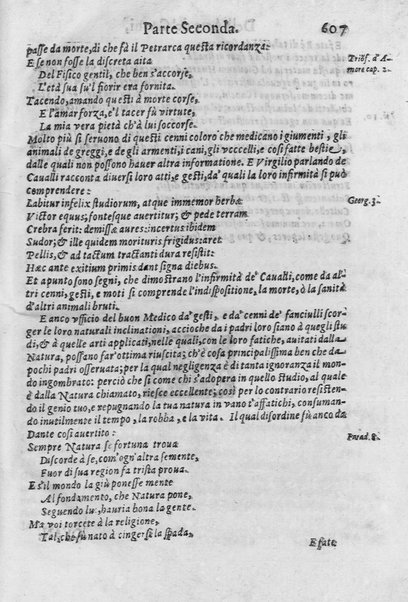 Parte Seconda. 607
passe da morte, di che fà il Petrarca questa ricordanza:
E se non fosse la discreta aita
Triōf. d'A-
more cap. 2.
Del Fisico gentil, che ben s'accorse,
L'età sua su'l fiorir era fornita.
Tacendo, amando questi à morte corse,
E l'amar forza, e'l tacer fù virtute,
La mia vera pietà ch'à lui soccorse.
Molto più si seruono di questi cenni coloro che medicano i giumenti, gli
animali de greggi, e de gli armenti, i cani, gli vccelli, e cosi fatte bestie,
dalle quali non possono hauer altra informatione. E Virgilio parlando de
Caualli racconta diuersi loro atti, e gesti, da' quali la loro infirmità si può
comprendere:
Labitur infelix studiorum, atque immemor herbæ
Georg. 3.
Victor equus; fontesque auertitur; & pede terram
Crebra ferit: demissæ aures: incertus ibidem
Sudor; & ille quidem morituris frigidus: aret
Pellis, & ad tactum tractanti dura resistit:
Hæc ante exitium primis dant signa diebus.
Et apunto sono segni, che dimostrano l'infirmità de' Caualli, come da al-
tri cenni, gesti, e moti si comprende l'indispositione, la morte, ò la sanità
d'altri animali bruti.
E anco vfficio del buon Medico da' gesti, e da' cenni de' fanciulli scor-
ger le loro naturali inclinationi, accioche da i padri loro siano à quegli stu-
dij, & à quelle arti applicati, nelle quali, con le loro fatiche, aiutati dalla
Natura, possano far'ottima riuscita; ch'è cosa principalissima ben che da
pochi padri osseruata; per la qual negligenza è di tanta ignoranza il mon-
do ingombrato: perciò che si come chi s'adopera in quello studio, al quale
è dalla Natura chiamato, riesce eccellente; così per lo contrario resisten-
do il genio tuo, e repugnando la tua natura in vano t'affatichi, consuman-
do inutilmente il tempo, la robba, e la vita. Il qual disordine fù anco da
Dante così auertito:
Parad. 8.
Sempre Natura se fortuna troua
Discorde à se, com'ogn'altra semente,
Fuor di sua region fa trista proua.
E s'il mondo la giù ponesse mente
Al fondamento, che Natura pone,
Seguendo lui, hauria bona la gente.
Ma voi torcete à la religione,
Tal, che fù nato à cingersi la spada,
E fate